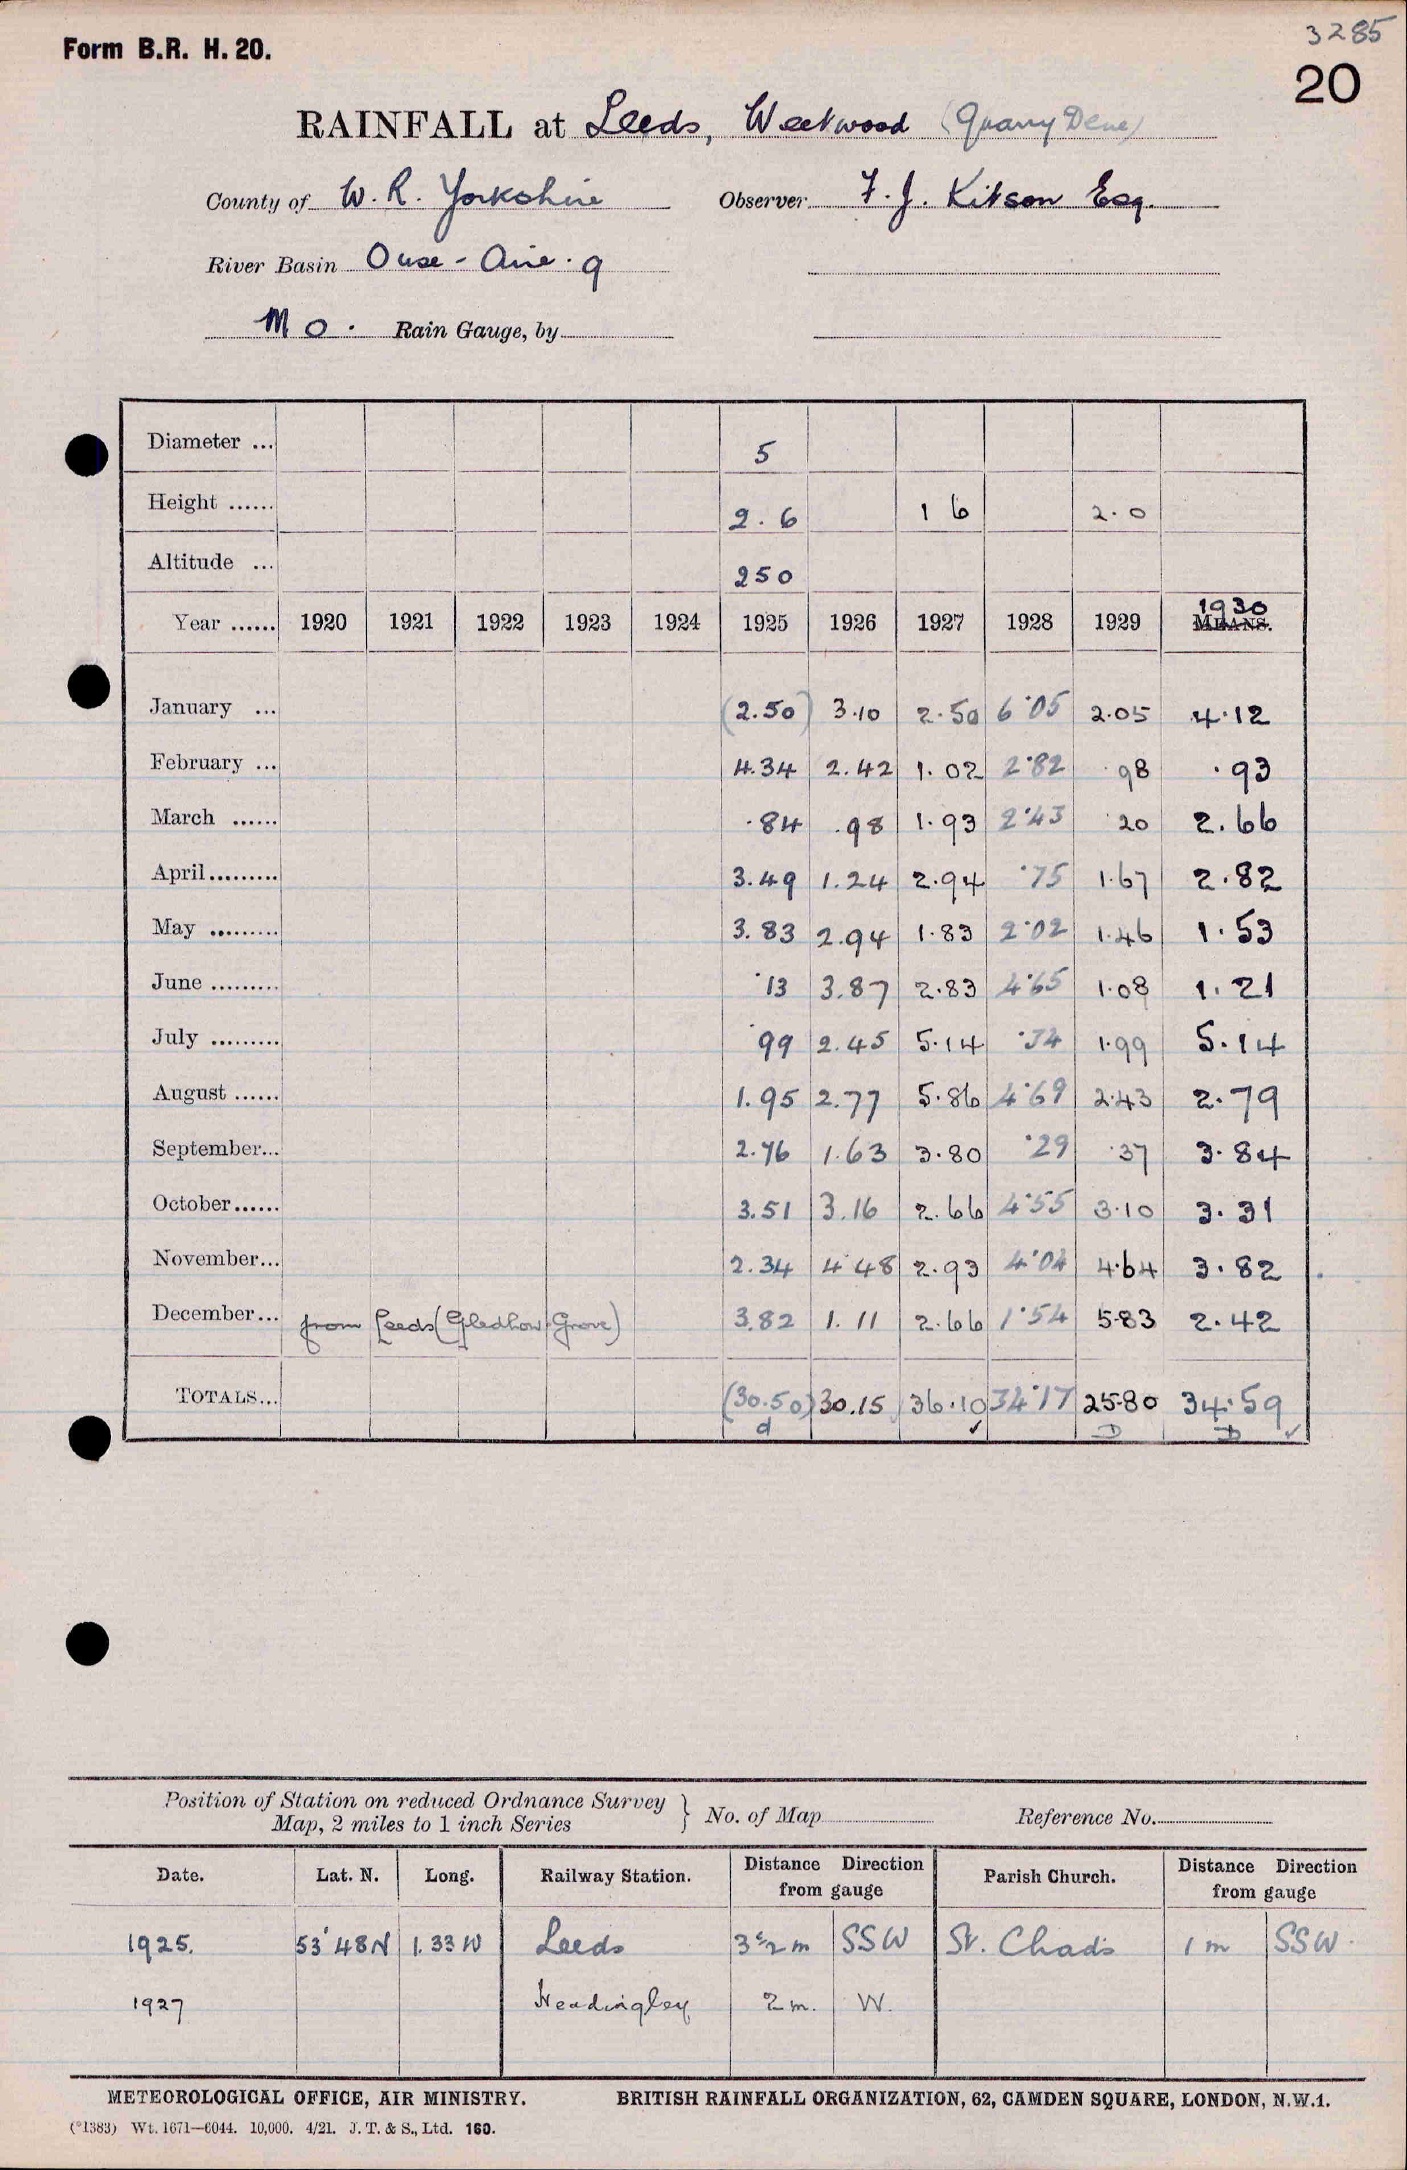 3285
Form B.R. H. 20.
20
RAINFALL at Leeds, Weetwood (Quarry Dene)
County of W. R. Yorkshire Observer F. J. Kitson Esq.
River Basin Ouse - Aire . 9
M O . Rain Gauge, by
Diameter ... 5
Height ...... 2 . 6 1 6 2 . 0
Altitude ... 250
1930
Year ...... 1920 1921 1922 1923 1924 1925 1926 1927 1928 1929 MEANS.
January ... (2.50) 3.10 2.50 6.05 2.05 4.12
February ... 4.34 2.42 1.02 2.82 .98 .93
March ...... .84 .98 1.93 2.43 .20 2.66
April......... 3.49 1.24 2.94 .75 1.67 2.82
May ......... 3.83 2.94 1.83 2.02 1.46 1.53
June ......... .13 3.87 2.83 4.65 1.08 1.21
July ......... .99 2.45 5.14 .34 1.99 5.14
August ...... 1.95 2.77 5.86 4.69 2.43 2.79
September... 2.76 1.63 3.80 .29 .37 3.84
October...... 3.51 3.16 2.66 4.55 3.10 3.31
November... 2.34 4.48 2.93 4.04 4.64 3.82
December... from Leeds (Gledhow Grove) 3.82 1.11 2.66 1.54 5.83 2.42
TOTALS... (30.50) 30.15 36.10 34.17 25.80 34.59
d ✓ D D ✓
Position of Station on reduced Ordnance Survey
Map, 2 miles to 1 inch Series } No. of Map Reference No.
Date. Lat. N. Long. Railway Station. Distance Direction from gauge Parish Church. Distance Direction from gauge
1925. 53°48N 1.33W Leeds 3½m SSW St. Chads 1 m SSW.
1927 Headingley 2 m. W.
METEOROLOGICAL OFFICE, AIR MINISTRY. BRITISH RAINFALL ORGANIZATION, 62, CAMDEN SQUARE, LONDON, N.W.1.
(*1383) Wt. 1671—6044. 10,000. 4/21. J. T. & S., Ltd. 160.